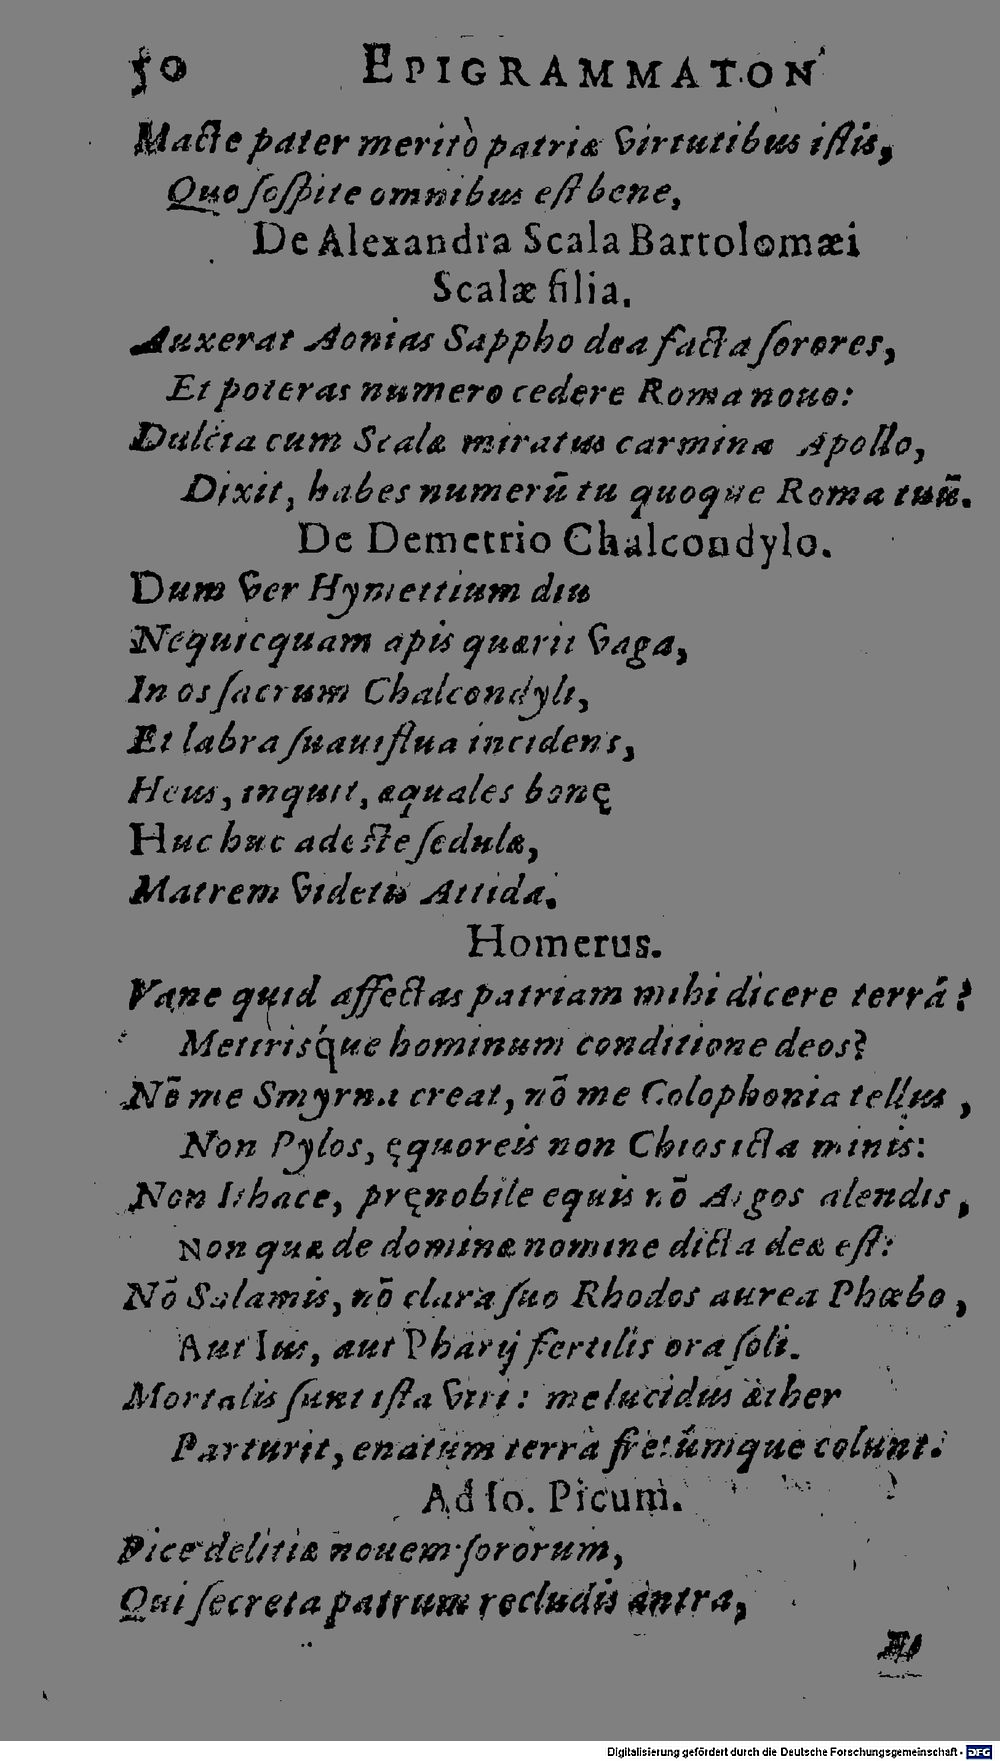 50 EPIGRAMMATON
Macte pater meritò patriæ virtutibus istis,
Quo sospite omnibus est bene,
De Alexandra Scala Bartolomæi
Scalæ filia.
Auxerat Aonias Sappho dea facta sorores,
Et poteras numero cedere Roma nouo:
Dulcia cum Scalæ miratus carmina Apollo,
Dixit, habes numerū tu quoque Roma tuū.
De Demetrio Chalcondylo.
Dum ver Hymettium diu
Nequicquam apis quærit vaga,
In os sacrum Chalcondyli,
Et labra suauiflua incidens,
Heus, inquit, æquales bonę
Huc huc adeste sedulæ,
Matrem videtis Attida.
Homerus.
Vane quid affectas patriam mihi dicere terrā?
Metirisq́ue hominum conditione deos?
Nō me Smyrna creat, nō me Colophonia tellus,
Non Pylos, ęquoreis non Chios icta minis:
Non Ithace, pręnobile equis nō Argos alendis,
Non quæ de dominæ nomine dicta deæ est:
Nō Salamis, nō clara suo Rhodos aurea Phœbo,
Aut Ius, aut Pharij fertilis ora soli.
Mortalis sunt ista viri: me lucidus æther
Parturit, enatum terra fretúmque colunt.
Ad Io. Picum.
Pice delitiæ nouem sororum,
Qui secreta patrum recludis antra,
Digitalisierung gefördert durch die Deutsche Forschungsgemeinschaft - DFG